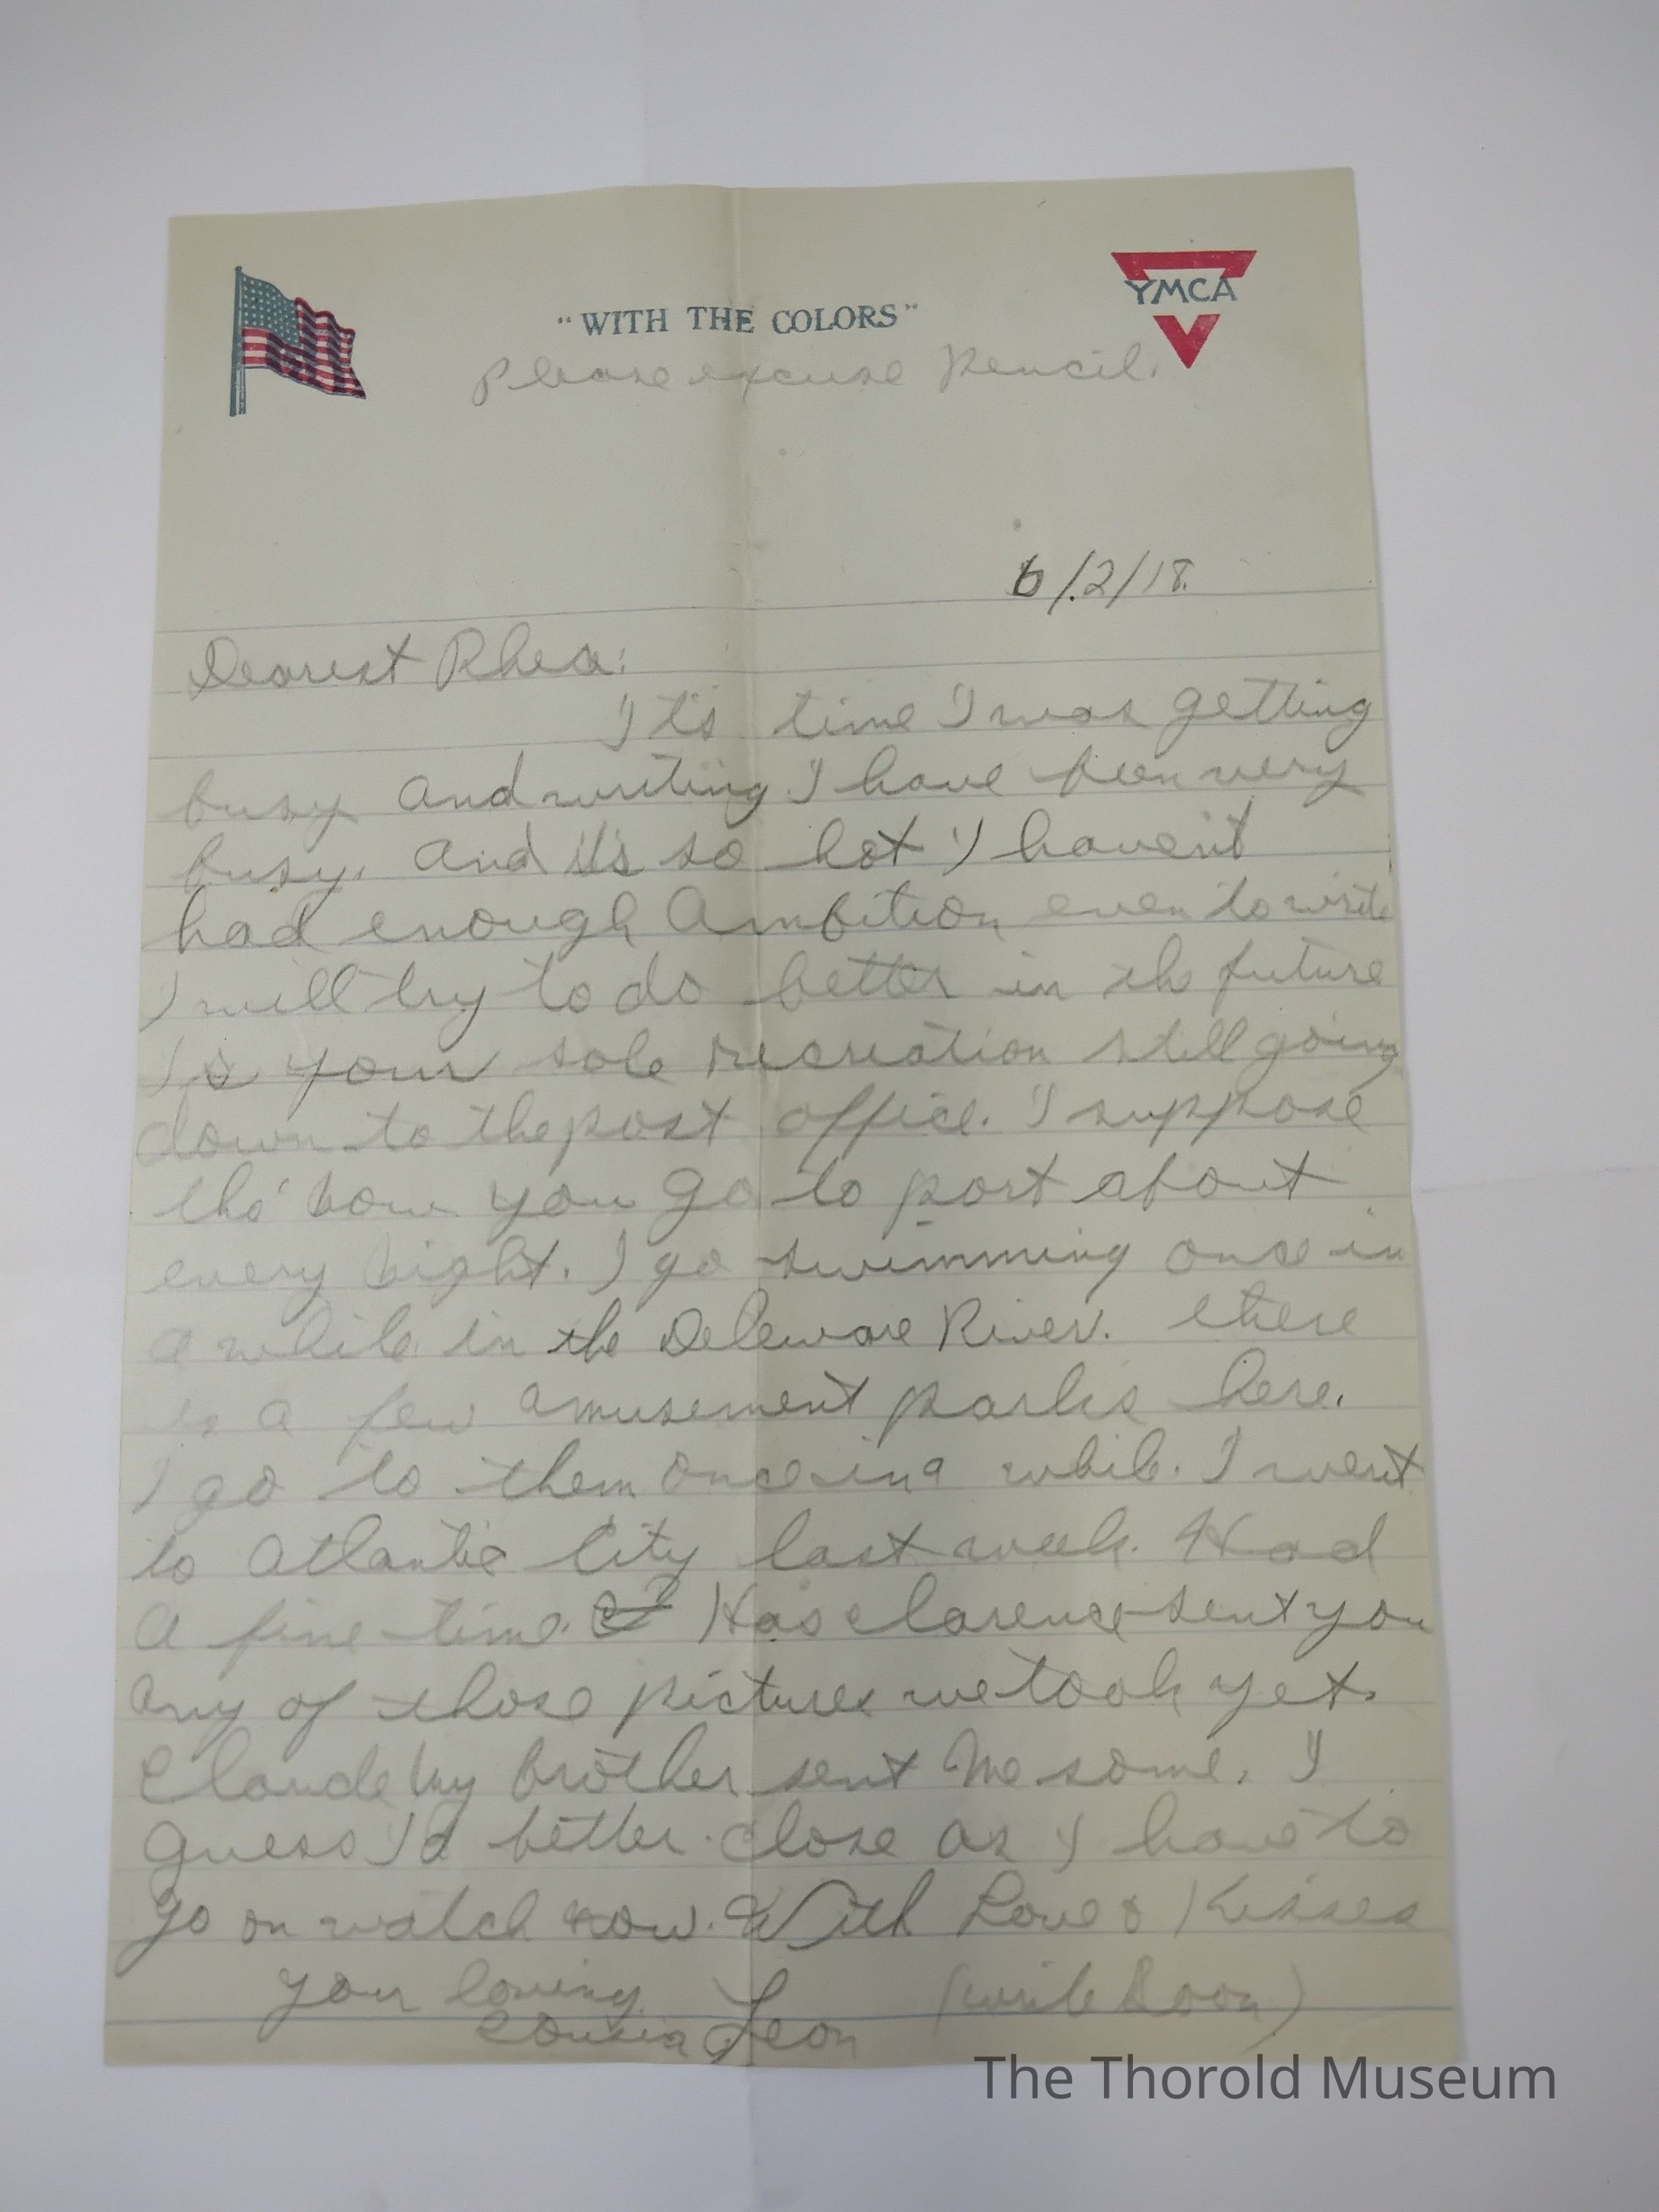 "WITH THE COLORS"
YMCA
Please excuse Pencil.
6/2/18.
Dearest Rhea:
It's time I was getting
busy and writing I have been very
busy. and it's so hot I haven't
had enough ambition even to write
I will try to do better in the future
Is your sole recreation still going
down to the post office. I suppose
tho' now you go to port about
every night. I go swimming once in
a while in the Deleware River. there
is a few amusement parks here.
I go to them once in a while. I went
to Atlantic City last week. Had
a fine time. Has Clarence sent you
any of those pictures we took yet.
Claude my brother sent me some. I
guess I'd better close as I have to
go on watch now. With Love & Kisses
your loving (write soon)
cousin Leon
The Thorold Museum